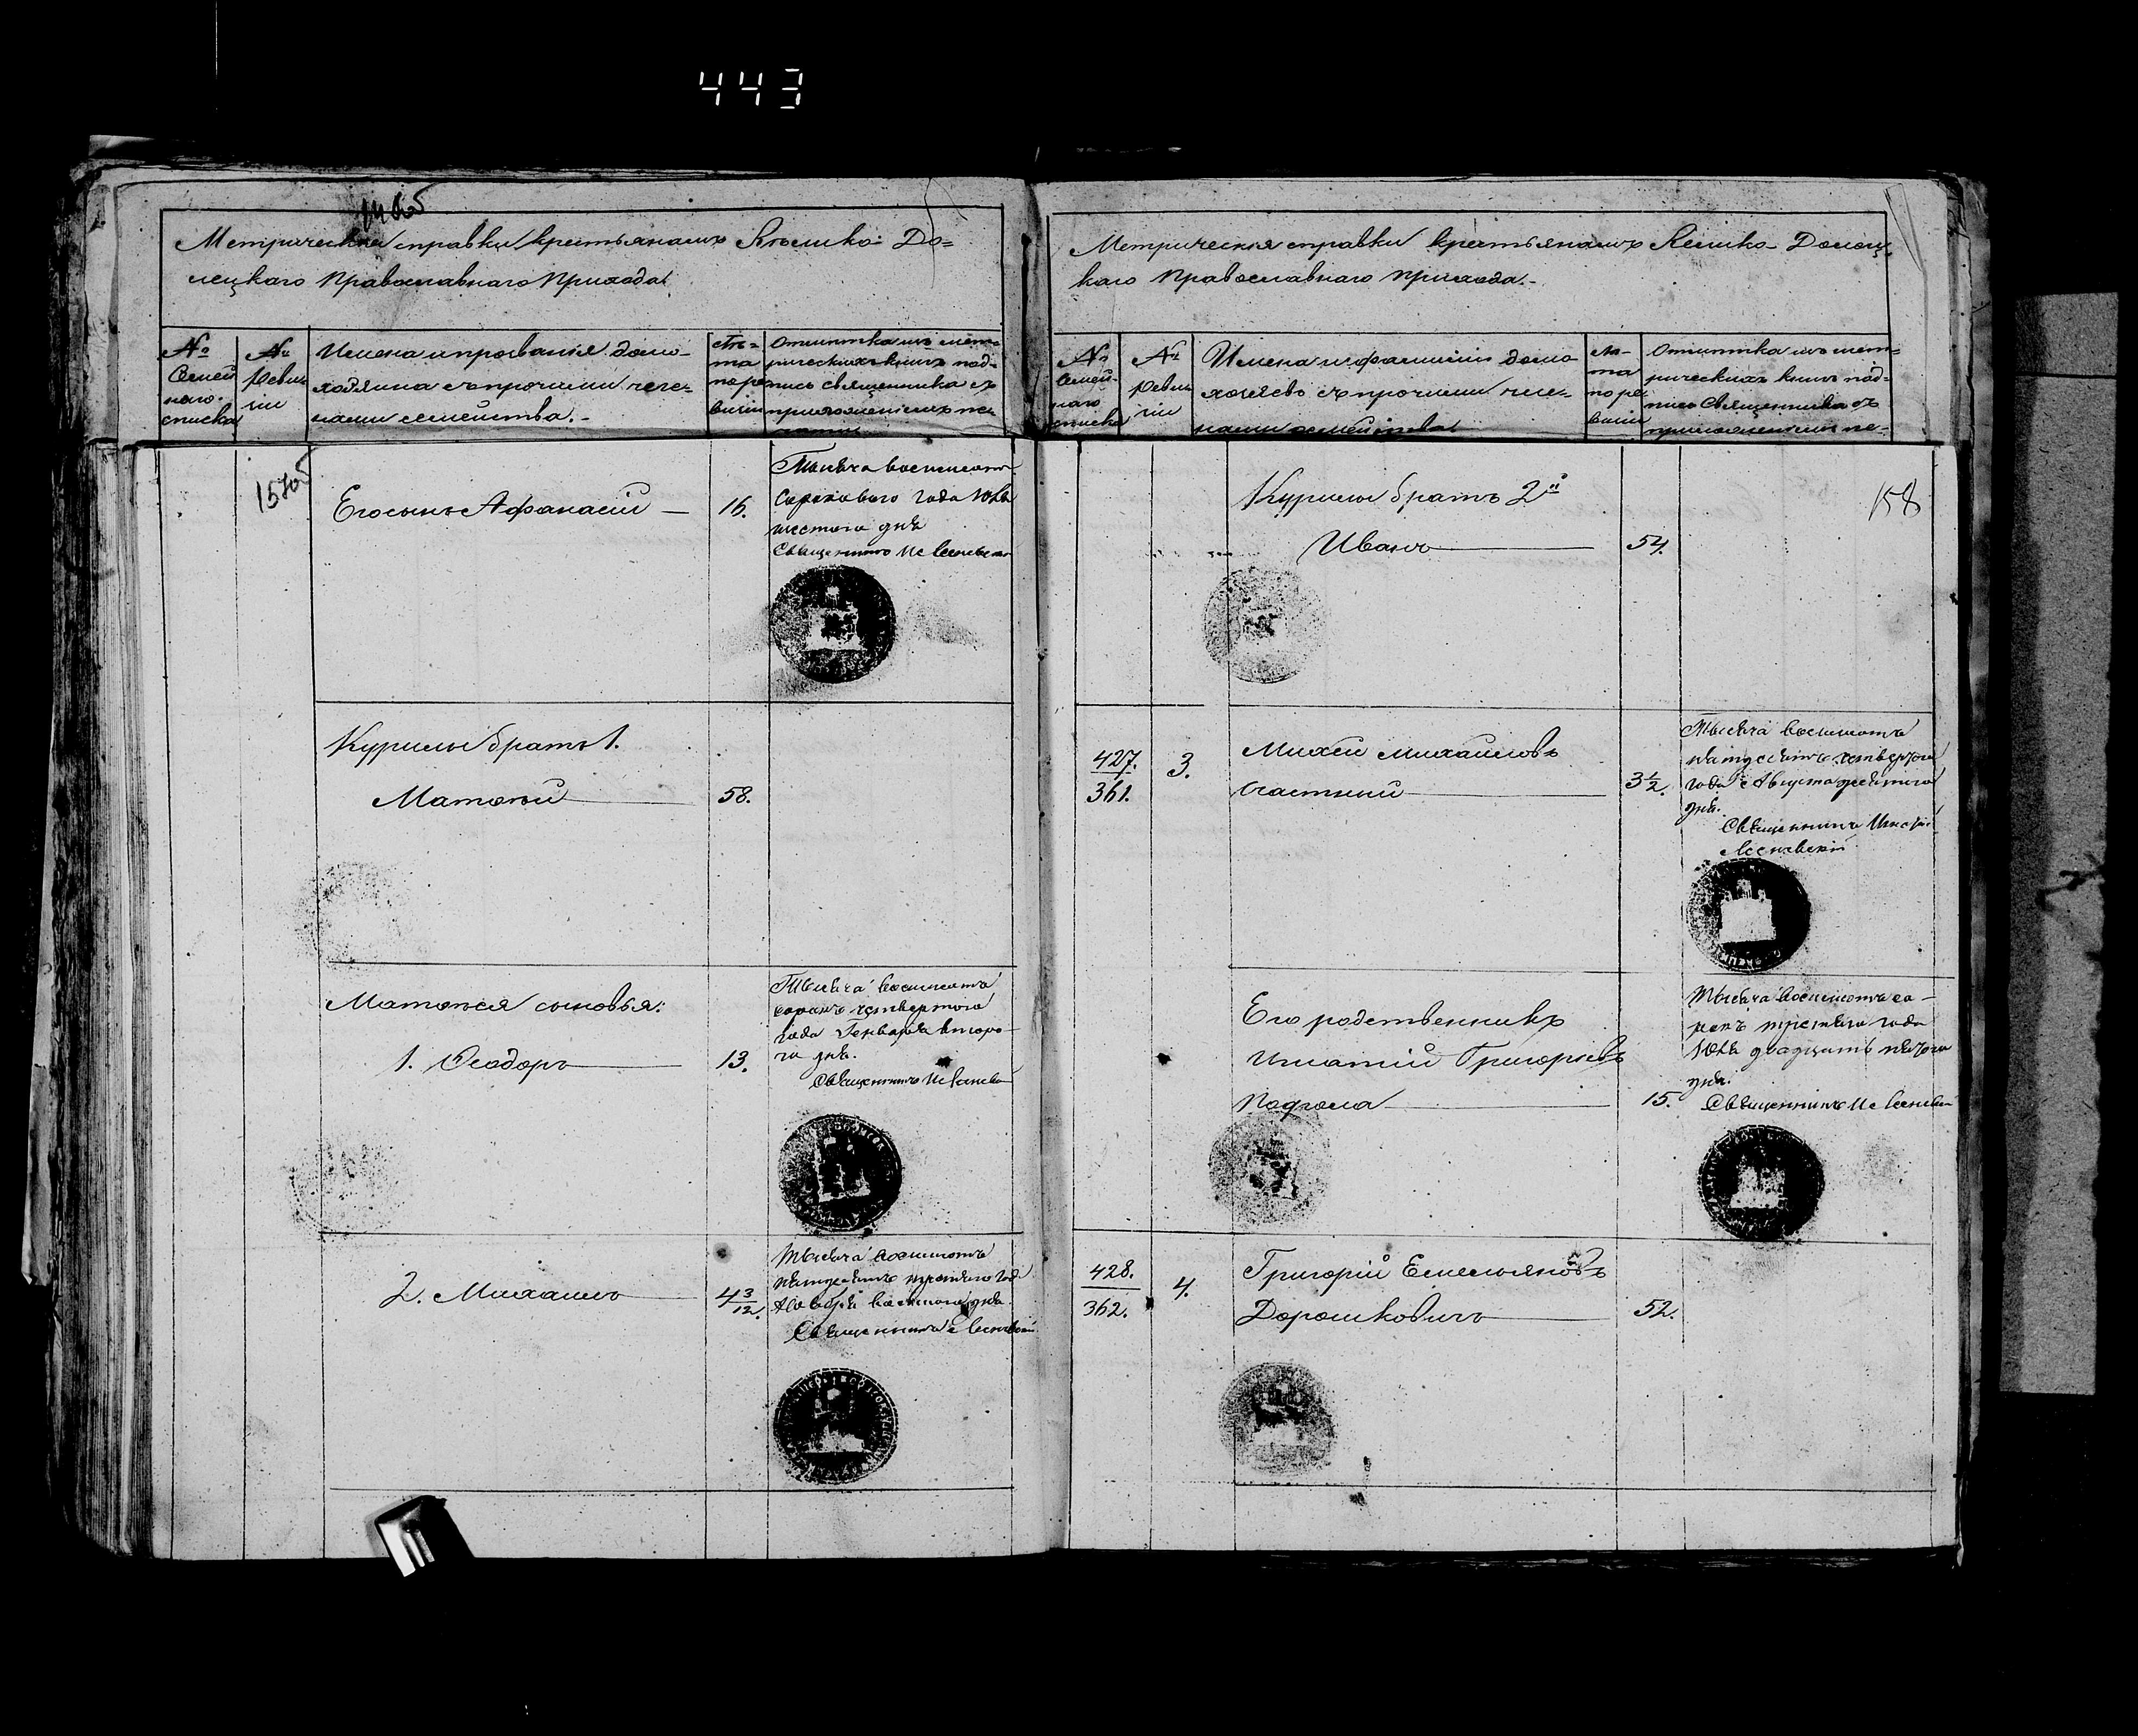 443
Метрическія справки крестьянамъ Клешко-До=
лецкаго Православнаго Прихода
№
Семей
наго
списка
№
Реви
зіи
Имена и прозванія домо-
хозяина съ прочими чле=
нами семейства.-
Лѣ=
та
по ре
визіи
Отмѣтка изъ мет=
рическихъ книгъ под=
пись священника съ
приложеніемъ пе=
чати
157об
Его сынъ Афанасій — 16.
Тысяча восемьсотъ
сороковаго года Юля
шестого дня
Священникъ
Курилы братъ 1.
Матвѣй 58.
Матвѣя сыновья:
1. Ѳеодоръ 13.
Тысяча восемьсотъ
сорокъ четвертаго
года Генваря второ-
го дня.
Священникъ
2. Михаилъ 4 3/12.
Тысяча восемьсотъ
пятдесятъ третяго года
Ноября восьмого дня.
Священникъ
Метрическія справки крестьянамъ Долец-
каго Православнаго Прихода.-
№
Семей-
наго
списка
№
Реви
зіи
Имена и фамиліи домо
хозяевъ съ прочими чле=
нами семейства
Лѣ-
та
по ре
визіи
Отмѣтка изъ мет=
рическихъ книгъ под=
пись Священника съ
приложеніемъ пе=
158
Курилы братъ 2й
Иванъ 54.
427.
361.
3.
Михей Михайловъ
Счастный 3 1/2.
Тысяча восемьсотъ
пятдесятъ четвертаго
года Августа девятого
дня.
Священникъ
428.
362.
Его родственникъ
Игнатій Григорьевъ
15.
Тысяча восемьсотъ со-
рокъ третяго года
Юля двадцать пятого
дня.
Священникъ
4.
Григорій Емельяновъ
Дорошковичъ 52.